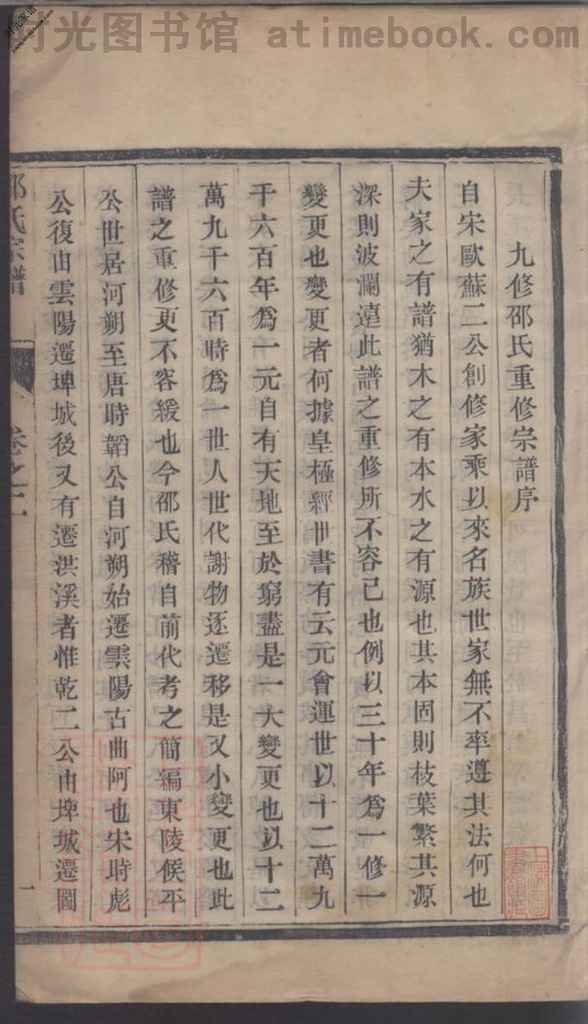 时光图书馆 atimebook.com
九修邵氏重修宗譜序
自宋歐蘇二公創修家乘以來名族世家無不率遵其法何也
夫家之有譜猶木之有本水之有源也其本固則枝葉繁其源
深則波瀾遠此譜之重修所不容已也例以三十年爲一修一
變更也變更者何據皇極經世書有云元會運世以十二萬九
千六百年爲一元自有天地至於窮盡是一大變更也以十二
萬九千六百時爲一世人世代謝物逐遷移是又小變更也此
譜之重修更不容緩也今邵氏稽自前代考之簡編東陵侯平
公世居河朔至唐時韜公自河朔始遷雲陽古曲阿也宋時彪
公復由雲陽遷埤城後又有遷洪溪者惟乾二公由埤城遷圌
邵氏宗譜
卷之二
一